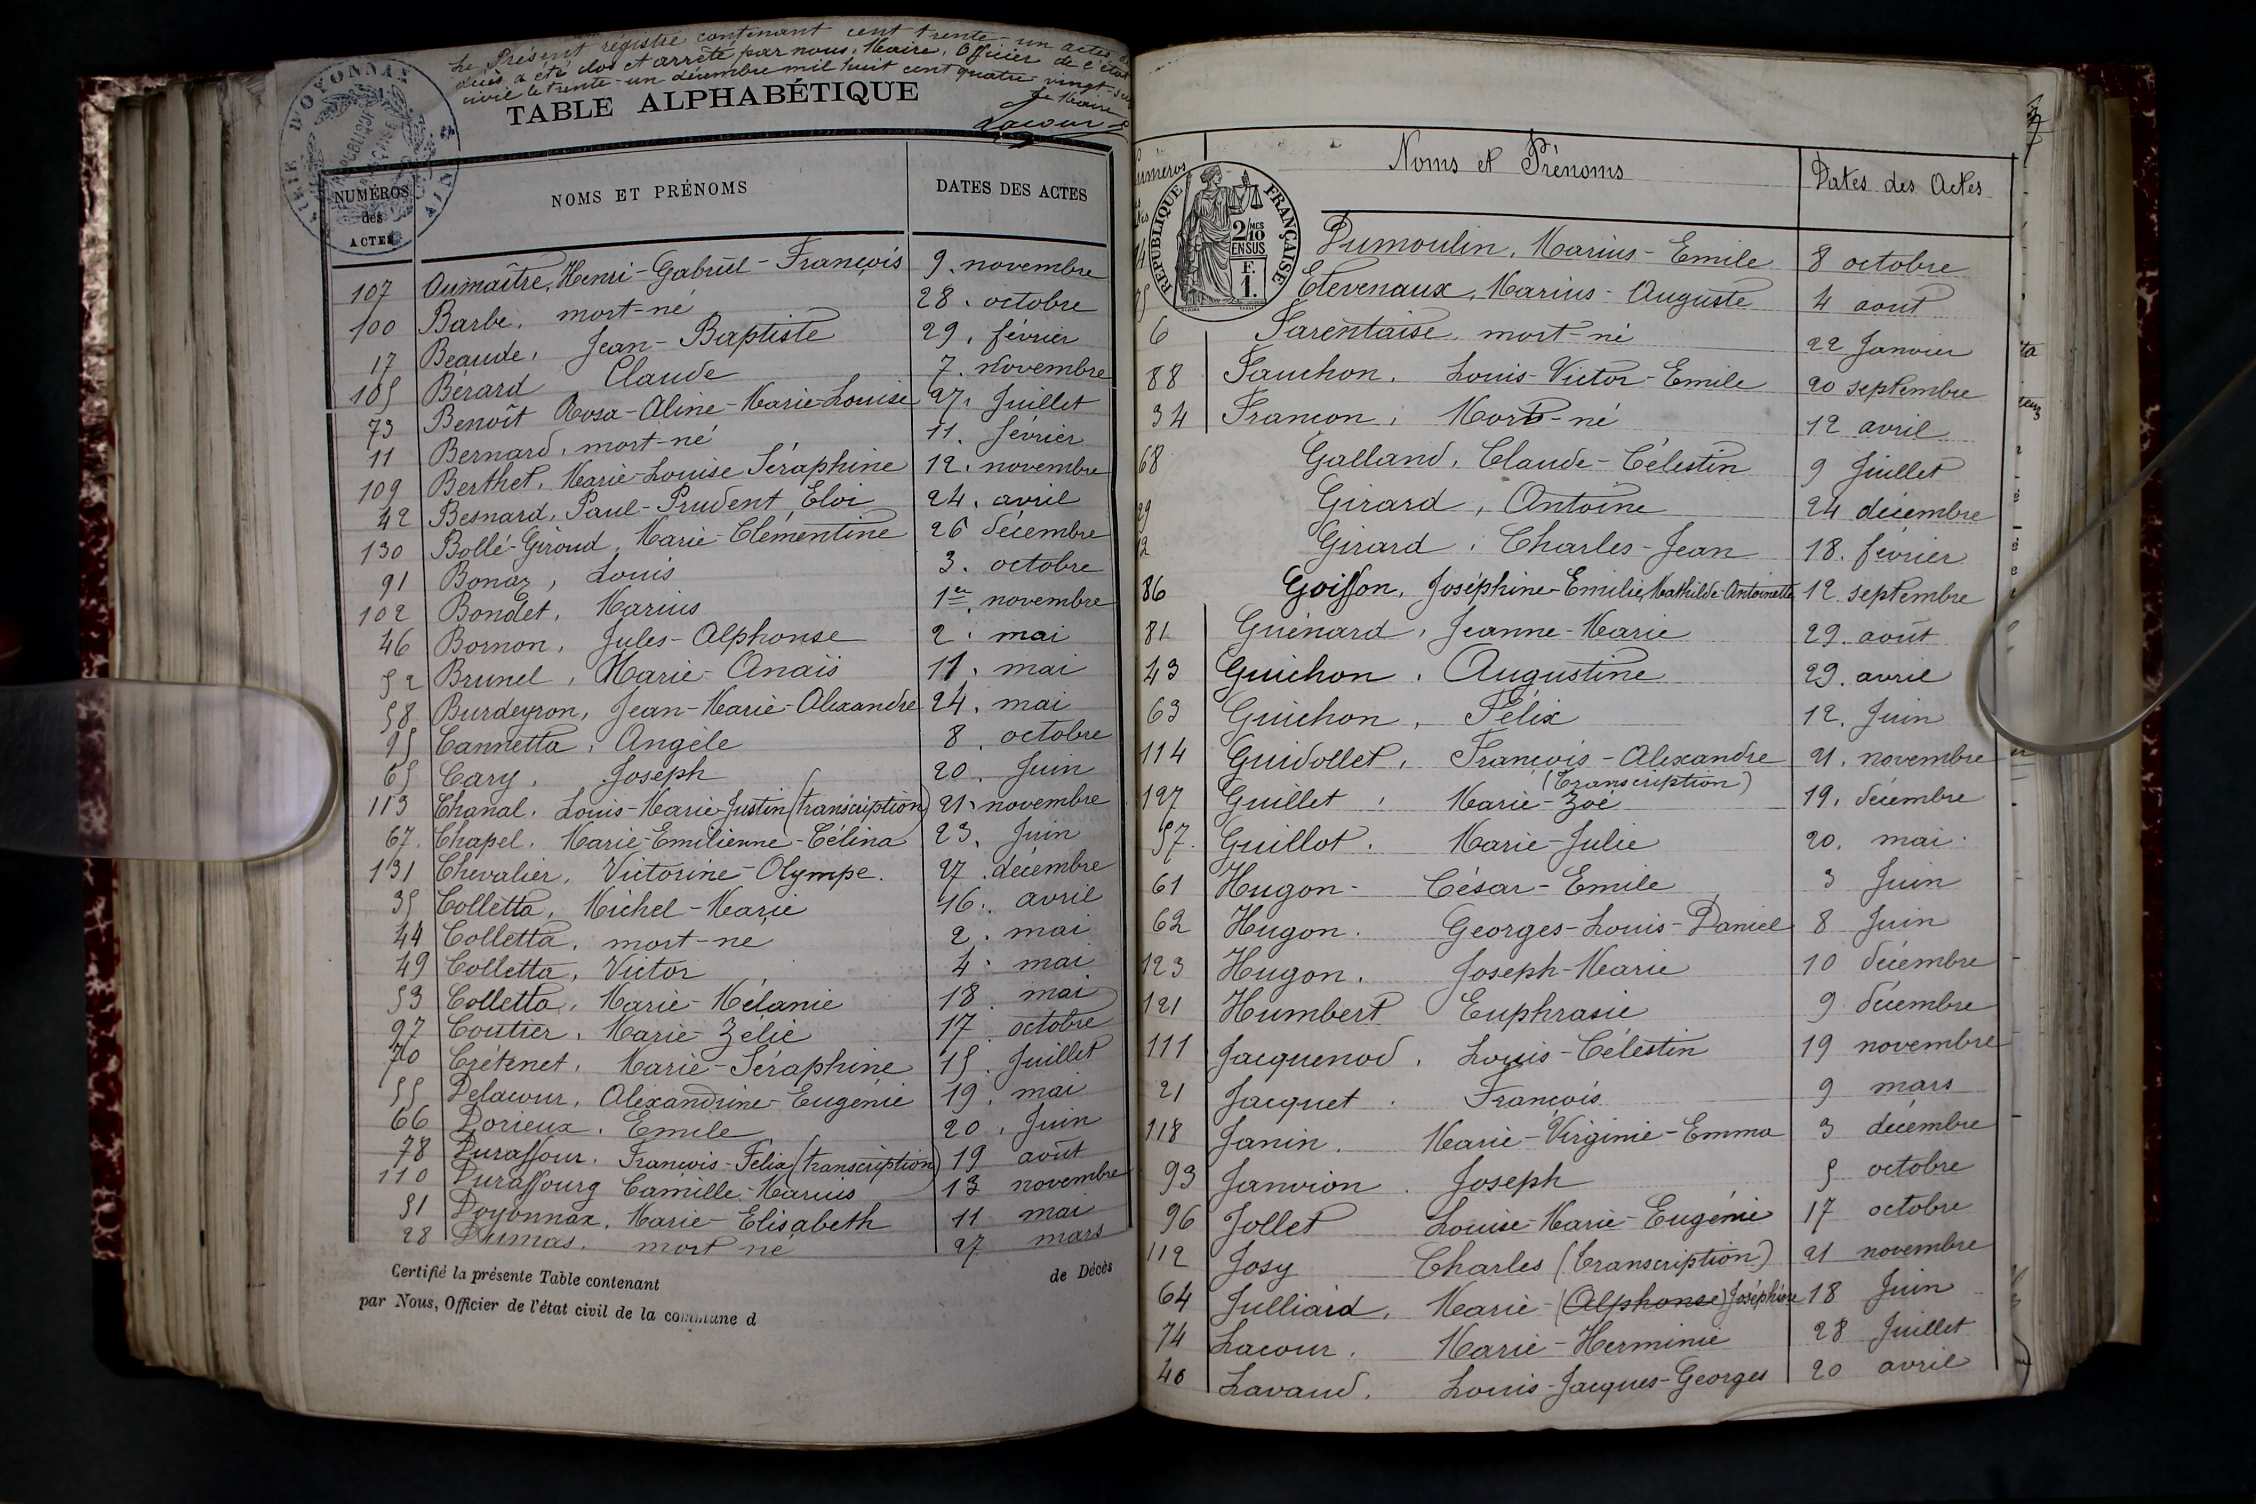 Le Présent registre contenant cent trente-un actes de
décès a été clos et arrêté par nous, Maire, Officier de l'état
civil le trente-un décembre mil huit cent quatre-vingt-
Le Maire
Lacour
MAIRIE D'OYONNAX
TABLE ALPHABÉTIQUE
NUMÉROS des ACTES NOMS ET PRÉNOMS DATES DES ACTES
107 Aumaître, Henri-Gabriel-François 9. novembre
100 Barbe, mort-né 28. octobre
17 Beaude, Jean-Baptiste 29. février
105 Berard Claude 7. novembre
73 Benoît Rosa-Aline-Marie-Louise 27. Juillet
11 Bernard, mort-né 11. février
109 Berthet, Marie-Louise Séraphine 12. novembre
42 Besnard, Paul-Prudent, Eloi 24. avril
130 Bollé-Geroud, Marie-Clémentine 26 décembre
91 Bonaz, Louis 3. octobre
102 Bondet, Marius 1er novembre
46 Bornon, Jules-Alphonse 2. mai
52 Brunel, Marie-Anaïs 11. mai
58 Burdeyron, Jean-Marie-Alexandre 24. mai
95 Cannetta, Angèle 8. octobre
65 Cary, Joseph 20. Juin
113 Chanal, Louis-Marie-Justin (transcription) 21. novembre
67. Chapel, Marie-Emilienne-Célina 23. Juin
131 Chevalier, Victorine-Olympe. 27. décembre
35 Colletta, Michel-Marie 16. avril
44 Colletta, mort-né 2. mai
49 Colletta, Victor 4. mai
53 Colletta, Marie-Mélanie 18. mai
97 Coutier, Marie-Zélie 17. octobre
70 Crétenet, Marie-Séraphine 15. Juillet
55 Delacour, Alexandrine-Eugénie 19. mai
66 Dorieux, Emile 20. Juin
78 Duraffour, François-Félix (transcription) 19 août
110 Duraffourg Camille-Marius 13 novembre
51 Doyonnax, Marie-Elisabeth 11 mai
28 Dumas, mort né 27 mars
Certifié la présente Table contenant de Décès
par Nous, Officier de l'état civil de la commune d
Numéros Noms et Prénoms Dates des Actes
RÉPUBLIQUE FRANÇAISE
2/10 EN SUS
F. 1.
Dumoulin, Marius-Emile 8 octobre
Etevenaux, Marius-Auguste 4 aout
6 Farentaise, mort-né 22 Janvier
88 Fauchon, Louis-Victor-Emile 20 septembre
34 Francon, Mort-né 12 avril
68 Galland, Claude-Célestin 9 Juillet
29 Girard, Antoine 24 décembre
12 Girard, Charles-Jean 18. février
86 Goiffon, Joséphine-Emilie, Mathilde-Antoinette 12 septembre
81 Guénard, Jeanne-Marie 29. août
43 Guichon, Augustine 29. avril
63 Guichon, Félix 12. Juin
114 Guidollet, François-Alexandre 21. novembre
(Transcription)
127 Guillet, Marie-Zoé 19. décembre
57. Guillot. Marie-Julie 20. mai.
61 Hugon- César-Emile 3 Juin
62 Hugon. Georges-Louis-Daniel 8 Juin
123 Hugon. Joseph-Marie 10 décembre
121 Humbert Euphrasie 9 décembre
111 Jacquenod, Louis-Célestin 19 novembre
21 Jacquet. François 9 mars
118 Janin. Marie-Virginie-Emma 3 décembre
93 Janvion. Joseph 5 octobre
96 Jollet Louise-Marie-Eugénie 17 octobre
112 Josy Charles (Transcription) 21 novembre
64 Julliard, Marie-(Alphonse) Joséphine 18 Juin
74 Lacour. Marie-Herminie 28 Juillet
40 Lavaud, Louis-Jacques-Georges 20 avril